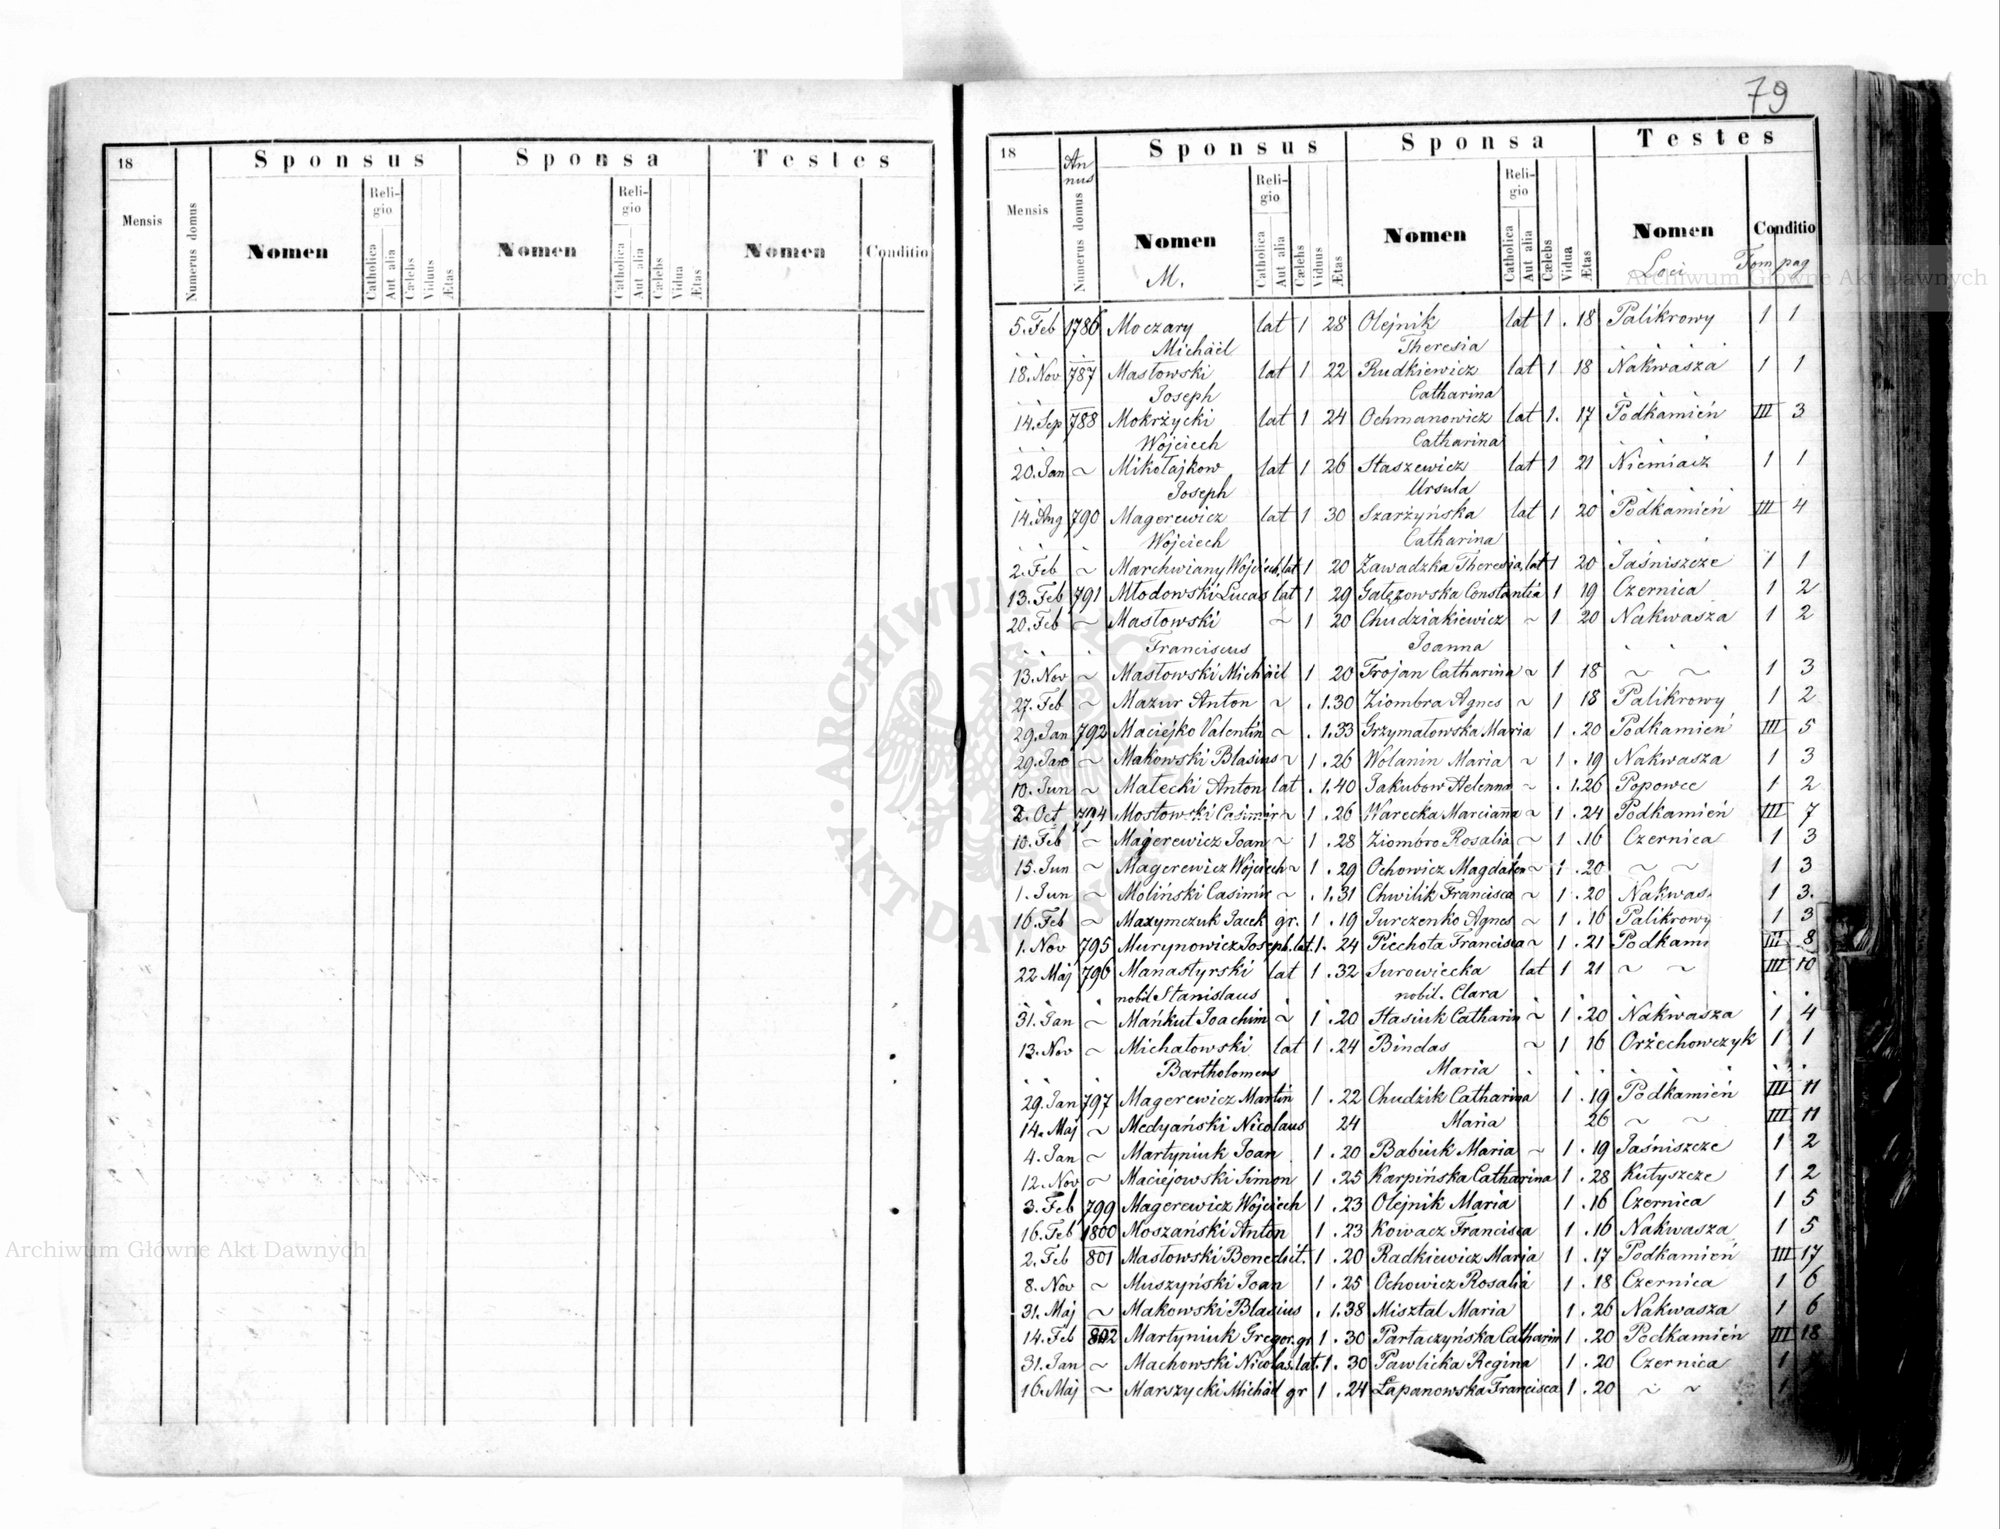 79
18 Sponsus Sponsa Testes
Mensis Numerus domus Nomen Religio Catholica Aut alia Cælebs Viduus Ætas Nomen Religio Catholica Aut alia Cælebs Vidua Ætas Nomen Conditio
18 Annus Sponsus Sponsa Testes
Mensis Numerus domus Nomen Religio Catholica Aut alia Cælebs Viduus Ætas Nomen Religio Catholica Aut alia Cælebs Vidua Ætas Nomen Conditio
M. Loci Tom pag
5. Feb 1786 Moczary lat 1 28 Olejnik lat 1 . 18 Palikrowy 1 1
Michäel Theresia
18. Nov 787 Masłowski lat 1 22 Rudkiewicz lat 1 18 Nakwasza 1 1
Joseph Catharina
14. Sep 788 Mokrżycki lat 1 24 Ochmanowicz lat 1. 17 Podkamień III 3
Wojciech Catharina
20. Jan ~ Mikołajkow lat 1 26 Staszewicz lat 1 21 Niemiacz 1 1
Joseph Ursula
14. Aug 790 Magerewicz lat 1 30 Szarżyńska lat 1 20 Podkamień III 4
Wojciech Catharina
2. Feb ~ Marchwiany Wojciech lat 1 20 Zawadzka Theresia lat 1 20 Jaśniszcze 1 1
13. Feb 791 Młodowski Lucas lat 1 29 Gałęzowska Constantia 1 19 Czernica 1 2
20. Feb ~ Masłowski ~ 1 20 Chudziakiewicz ~ 1 20 Nakwasza 1 2
Franciscus Joanna
13. Nov ~ Masłowski Michäel 1 20 Trojan Catharina ~ 1 18 ~ ~ 1 3
27. Feb ~ Mazur Anton ~ . 1.30 Ziombra Agnes ~ 1 18 Palikrowy 1 2
29. Jan 792 Maciejko Valentin ~ . 1.33 Grzymałowska Maria 1 . 20 Podkamień III 5
29. Jan ~ Makowski Blasius ~ 1 . 26 Wolanin Maria ~ 1 . 19 Nakwasza 1 3
10. Jun ~ Małecki Anton lat . 1.40 Jakubow Helenna ~ . 1.26 Popowce 1 2
2. Oct 794 Mosłowski Casimir ~ 1 . 26 Warecka Marcianna ~ 1 . 24 Podkamień III 7
10. Feb ~ Magerewicz Joan ~ 1 . 28 Ziombro Rosalia ~ 1 . 16 Czernica 1 3
15. Jun ~ Magerewicz Wojciech ~ 1 . 29 Ochowicz Magdalen ~ 1 . 20 ~ ~ 1 3
1. Jun ~ Moliński Casimir ~ . 1.31 Chwilik Francisca ~ 1 . 20 Nakwas. 1 3.
16. Feb ~ Maxymczuk Jacek gr. 1 . 19 Jurczenko Agnes ~ 1 . 16 Palikrowy 1 3
1. Nov 795 Murynowicz Joseph. lat. 1. 24 Piechota Francisca ~ 1 . 21 Podkami III 8
22 Maj 796 Manastyrski lat 1 . 32 Surowiecka lat 1 21 ~ ~ III 10
nobil Stanislaus nobil. Clara
31. Jan ~ Mańkut Joachim ~ 1 . 20 Stasiuk Catharin ~ 1 . 20 Nakwasza 1 4
13. Nov ~ Michałowski lat 1 . 24 Bindas ~ 1 16 Orżechowczyk 1 1
Bartholomeus Maria
29. Jan 797 Magerewicz Martin 1 . 22 Chudzik Catharina 1 . 19 Podkamień III 11
14. Maj ~ Medyański Nicolaus 24 Maria 26 ~ ~ III 11
4. Jan ~ Martyniuk Joan 1 . 20 Babiuk Maria ~ 1 . 19 Jaśniszcze 1 2
12. Nov ~ Maciejowski Simon 1 . 25 Karpińska Catharina 1 . 28 Kutyszcze 1 2
3. Feb 799 Magerewicz Wojciech 1 . 23 Olejnik Maria 1 . 16 Czernica 1 5
16. Feb 1800 Moszański Anton 1 . 23 Kowacz Francisca 1 . 16 Nakwasza 1 5
2. Feb 801 Masłowski Benedict. 1 . 20 Radkiewicz Maria 1 . 17 Podkamień III 17
8. Nov ~ Muszyński Joan 1 . 25 Ochowicz Rosalia 1 . 18 Czernica 1 6
31. Maj ~ Makowski Blasius . 1.38 Misztal Maria 1 . 26 Nakwasza 1 6
14. Feb 802 Martyniuk Gregor. gr 1 . 30 Partaczyńska Catharin 1 . 20 Podkamień III 18
31. Jan ~ Machowski Nicolas. lat. 1. 30 Pawlicka Regina 1 . 20 Czernica 1
16. Maj ~ Marszycki Michäel gr 1 . 24 Łapanowska Francisca 1 . 20 ~ ~
Archiwum Główne Akt Dawnych
Archiwum Główne Akt Dawnych